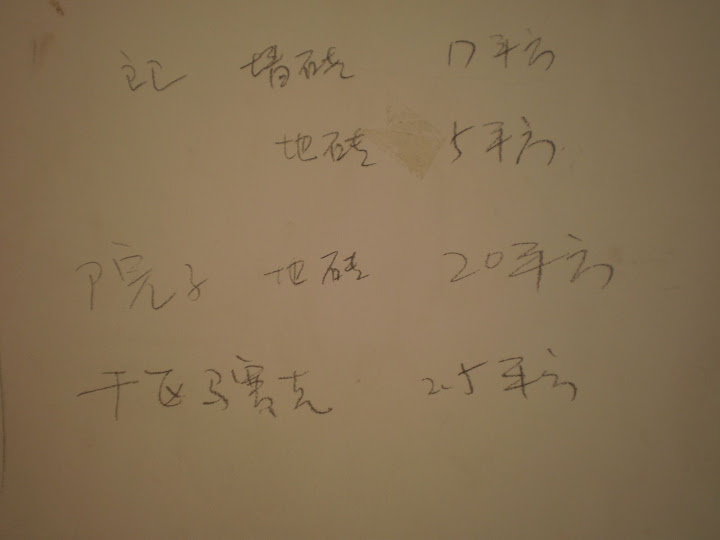 墙砖 17平方
地砖 5平方
院子 地砖 20平方
干区马赛克 2.5平方